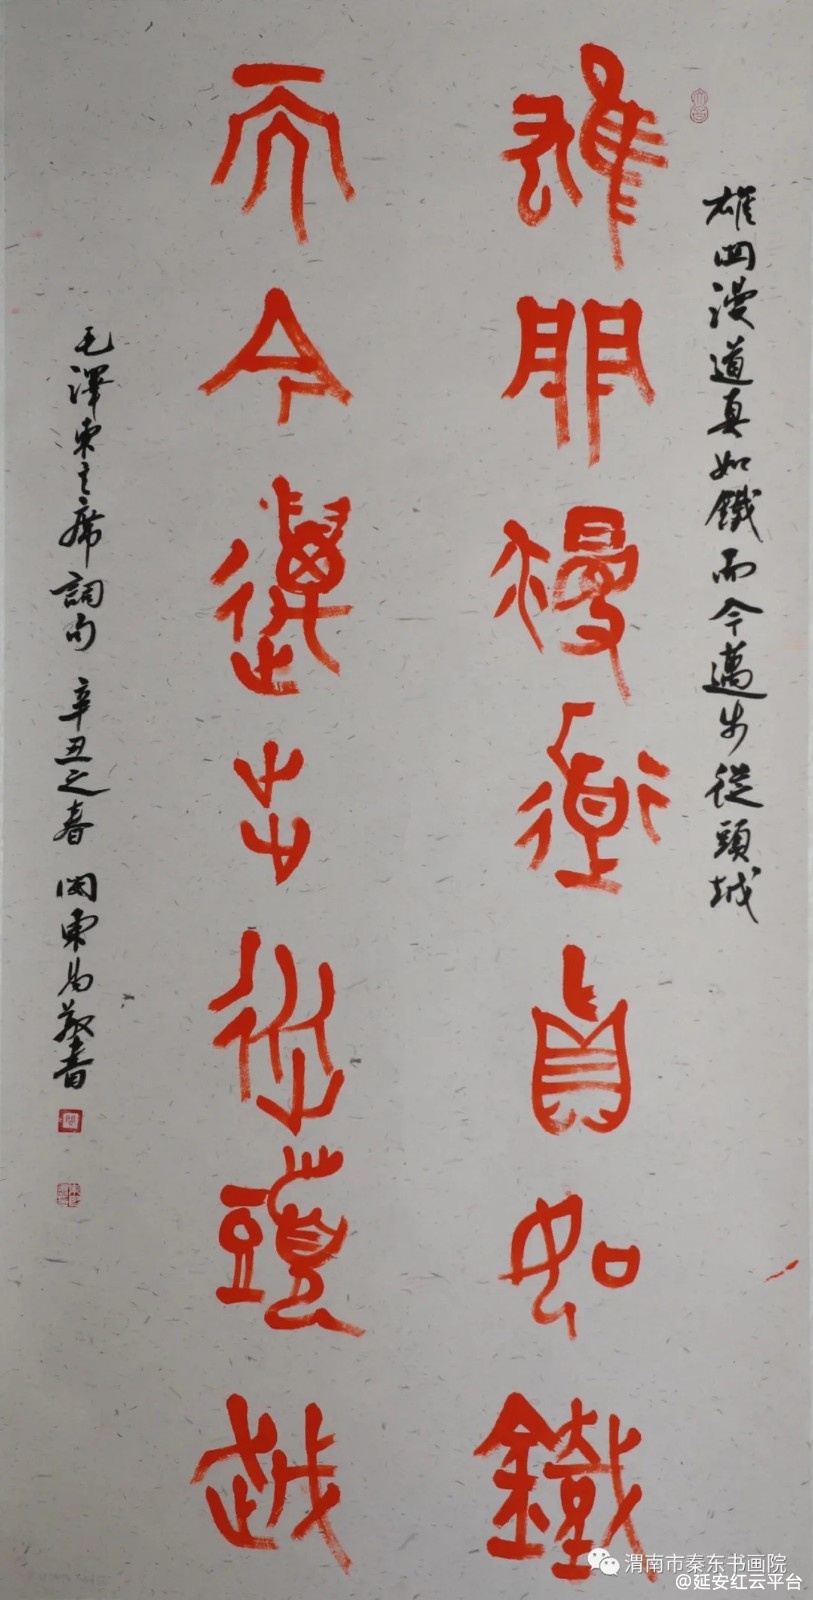 雄関漫道真如鐵而今邁步從頭越
雄關漫道真如鐵
而今邁步從頭越
毛澤東主席詞句 辛丑之春 関東 書
渭南市秦东书画院
@延安红云平台